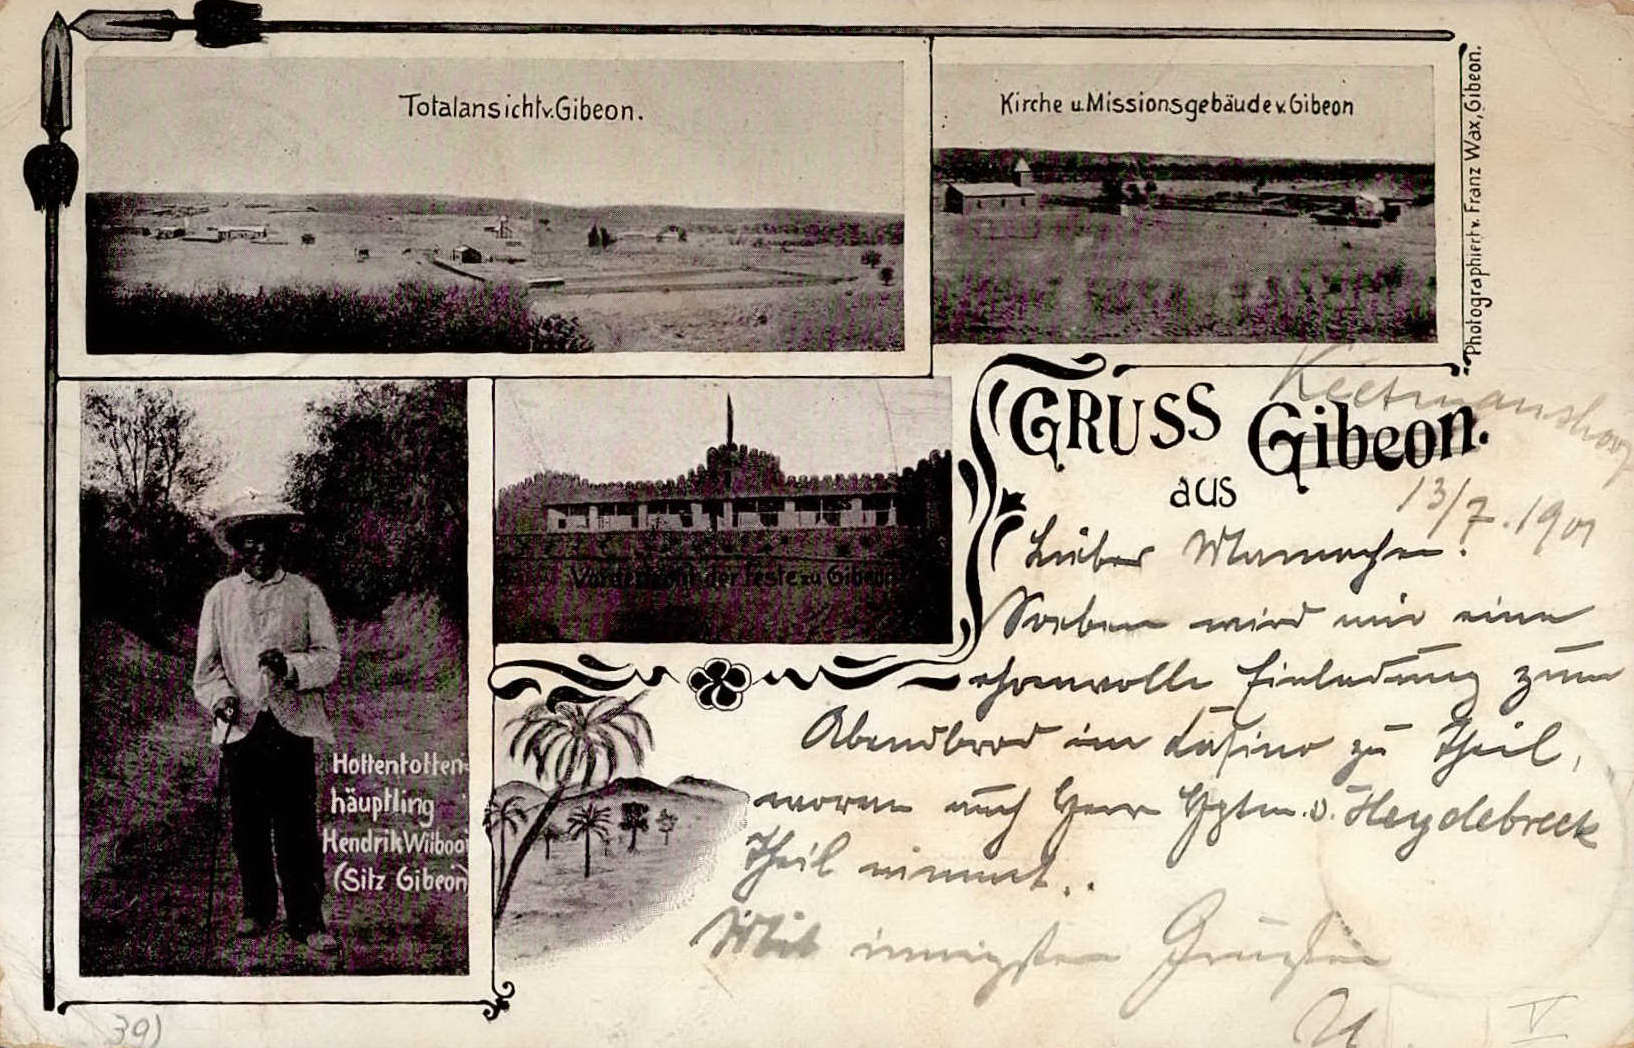 Totalansicht v. Gibeon.
Kirche u. Missionsgebäude v. Gibeon
Photographiert v. Franz Wax, Gibeon.
GRUSS
aus
Gibeon.
Keetmanshoop
13/7. 1901
Lieber Mamachen!
Soeben wird mir eine
ehrenvolle Einladung zum
Abendbrod im Kasino zu Theil,
woran auch Herr Hptm. v. Heydebreck
Theil nimmt.
Mit innigsten Grüßen
Vorderfront der Feste zu Gibeon
Hottentotten-
häuptling
Hendrik Witbooi
(Sitz Gibeon)
39)
V